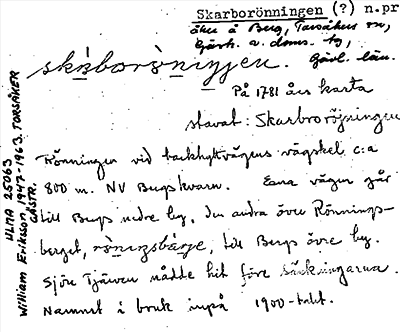 Skarborönningen (?) n.pr
åker å Berg, Torsåkers sn,
Gästr. v. doms. fg,
Gävl. län.
skàborò̱niŋjen.
På 1781 års karta
stavat: Skarbroröjningen
Rönningen vid tackhyttvägens vägskel c:a
800 m. NV Bergskvarn. Ena vägen går
till Bergs nedre by, den andra över Rönnings-
berget, rò̱niŋsbärje, till Bergs övre by.
Sjön Tjärven nådde hit före sänkningarna.
Namnet i bruk inpå 1900-talet.
ULMA 25063
William Eriksson, 1947-1963. TORSÅKER
GÄSTR.